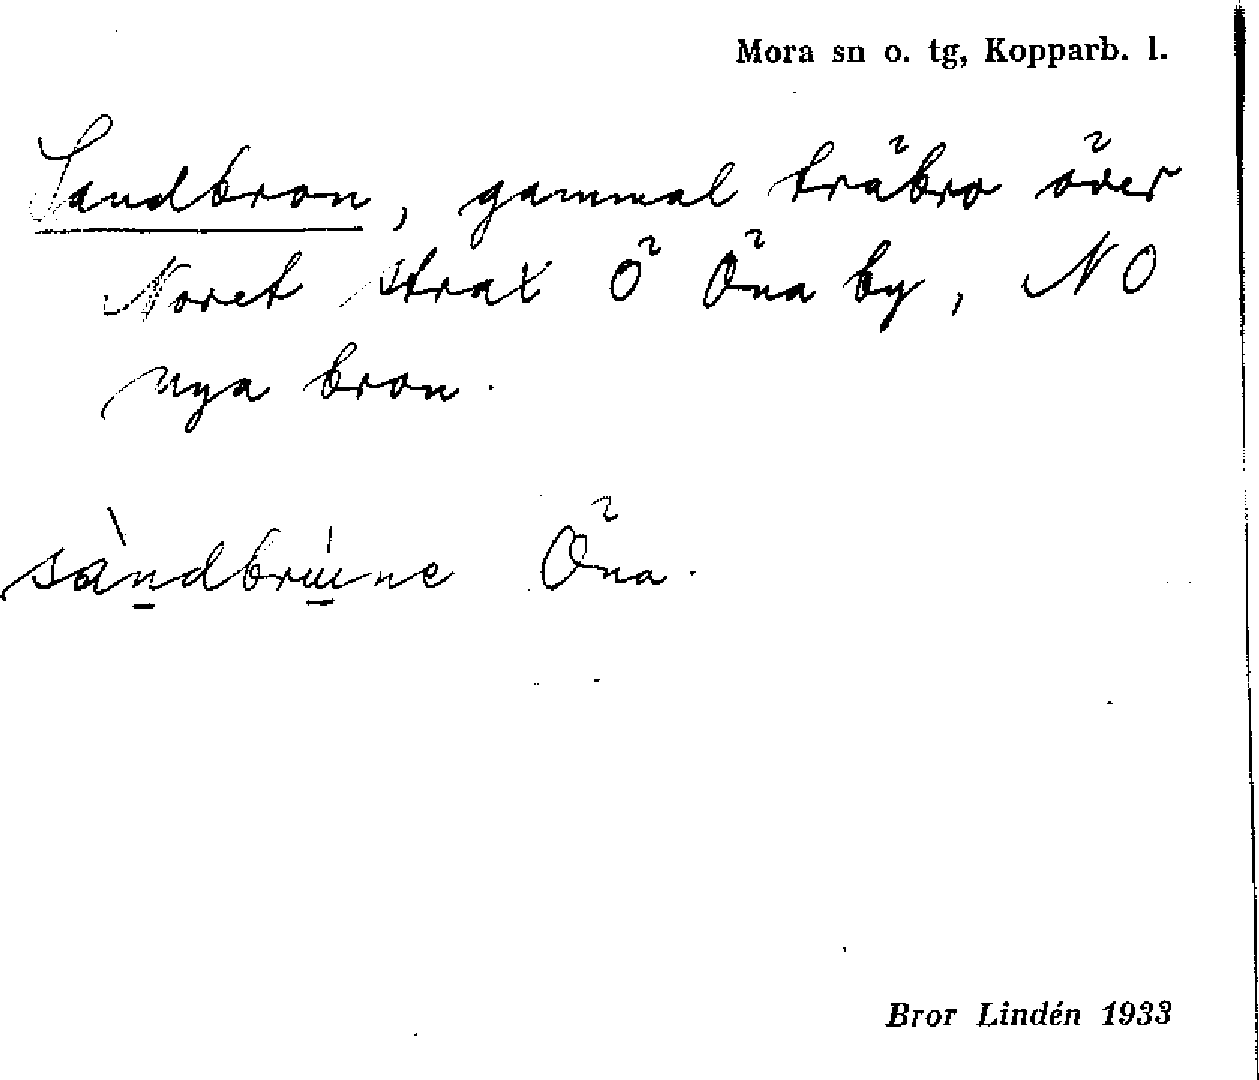 Mora sn o. tg, Kopparb. l.
Sandbron, gammal träbro över
Noret strax Ö Öna by, NO
nya bron.
sàndbrúne Öna.
Bror Lindén 1933